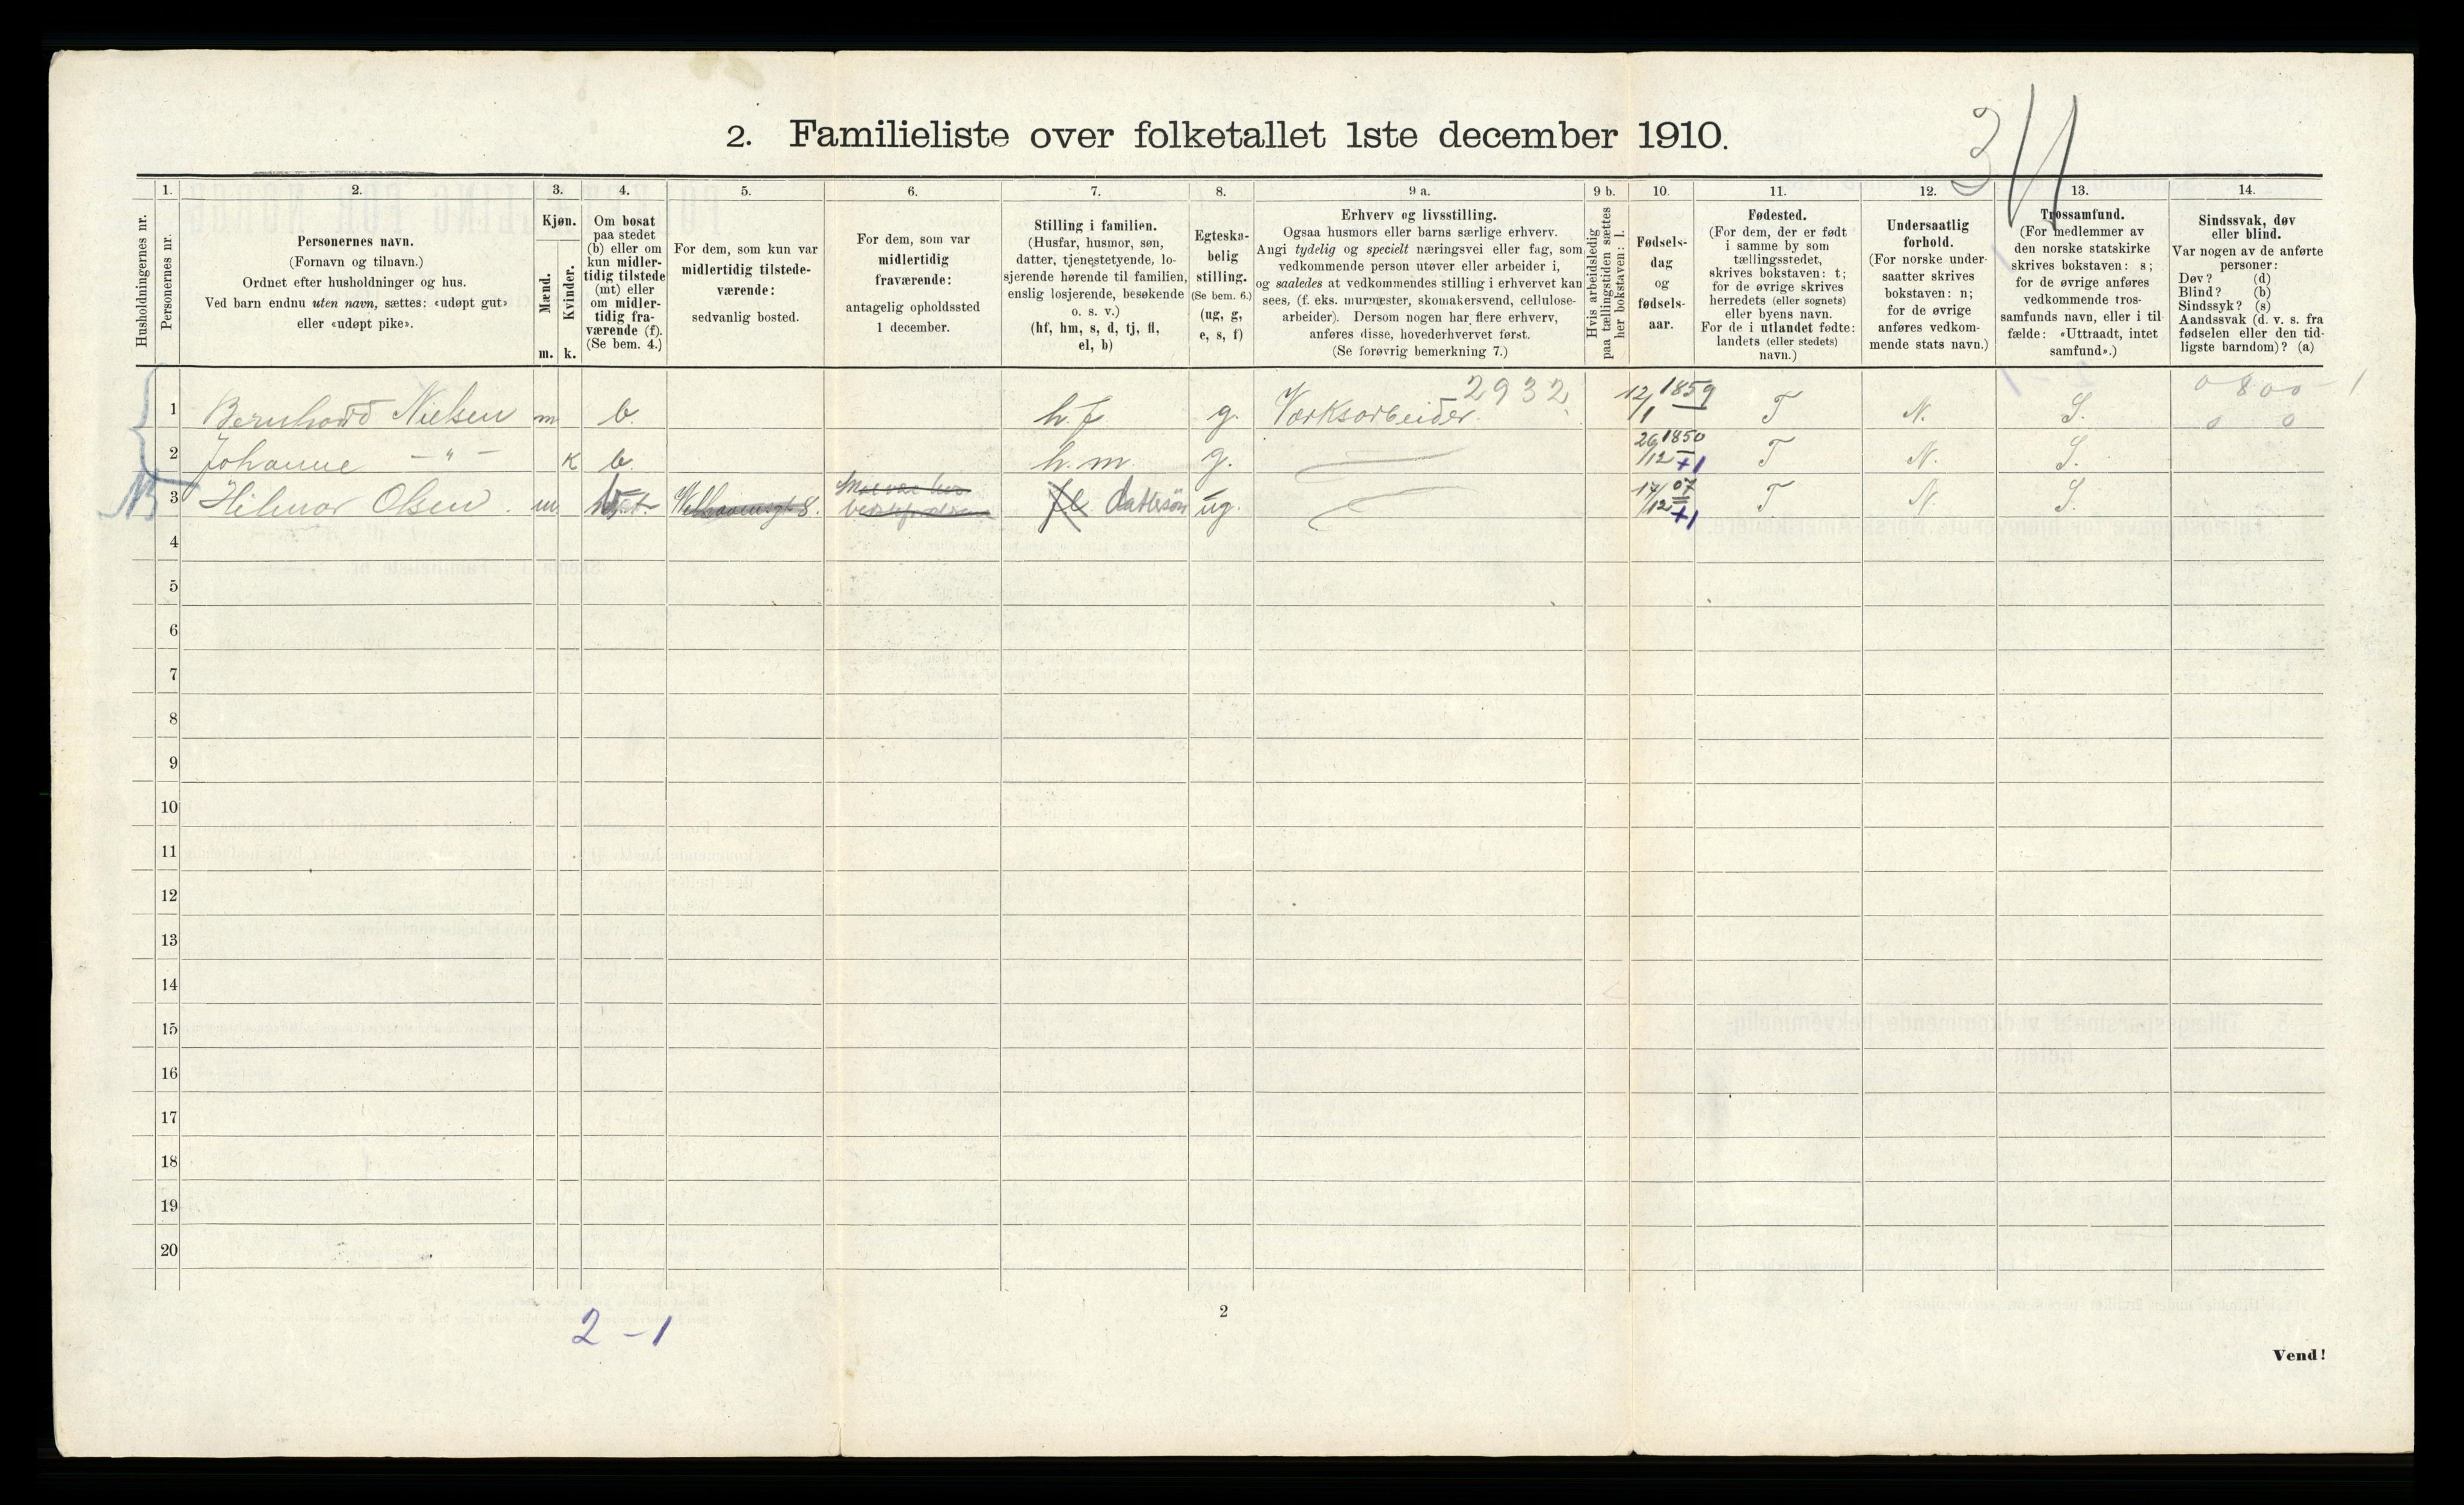 2. Familieliste over folketallet 1ste december 1910.
3
1. 2. 3. 4. 5. 6. 7. 8. 9 a. 9 b. 10. 11. 12. 13. 14.
Husholdningernes nr.
Personernes nr.
Personernes navn.
(Fornavn og tilnavn.)
Ordnet efter husholdninger og hus.
Ved barn endnu uten navn, sættes: «udøpt gut»
eller «udøpt pike».
Kjøn.
Mænd.
Kvinder.
m. k.
Om bosat
paa stedet
(b) eller om
kun midler-
tidig tilstede
(mt) eller
om midler-
tidig fra-
værende (f).
(Se bem. 4.)
For dem, som kun var
midlertidig tilstede-
værende:
sedvanlig bosted.
For dem, som var
midlertidig
fraværende:
antagelig opholdssted
1 december.
Stilling i familien.
(Husfar, husmor, søn,
datter, tjenestetyende, lo-
sjerende hørende til familien,
enslig losjerende, besøkende
o. s. v.)
(hf, hm, s, d, tj, fl,
el, b)
Egteska-
belig
stilling.
(Se bem. 6.)
(ug, g,
e, s, f)
Erhverv og livsstilling.
Ogsaa husmors eller barns særlige erhverv.
Angi tydelig og specielt næringsvei eller fag, som
vedkommende person utøver eller arbeider i,
og saaledes at vedkommendes stilling i erhvervet kan
sees, (f. eks. murmæster, skomakersvend, cellulose-
arbeider). Dersom nogen har flere erhverv,
anføres disse, hovederhvervet først.
(Se forøvrig bemerkning 7.)
Hvis arbeidsledig
paa tællingstiden sættes
her bokstaven: l.
Fødsels-
dag
og
fødsels-
aar.
Fødested.
(For dem, der er født
i samme by som
tællingsstedet,
skrives bokstaven: t;
for de øvrige skrives
herredets (eller sognets)
eller byens navn.
For de i utlandet fødte:
landets (eller stedets)
navn.)
Undersaatlig
forhold.
(For norske under-
saatter skrives
bokstaven: n;
for de øvrige
anføres vedkom-
mende stats navn.)
Trossamfund.
(For medlemmer av
den norske statskirke
skrives bokstaven: s;
for de øvrige anføres
vedkommende tros-
samfunds navn, eller i til-
fælde: «Uttraadt, intet
samfund».)
Sindssvak, døv
eller blind.
Var nogen av de anførte
personer:
Døv? (d)
Blind? (b)
Sindssyk? (s)
Aandssvak (d. v. s. fra
fødselen eller den tid-
ligste barndom)? (a)
2932
0 800 - 1
1 Bernhard Nielsen m b. h.f g. Værksarbeider. 12/1 1859 T N. S. 0 0
2 Johanne - " - K b. h.m. g. 26/12 1850 +1 T N. S.
NB 3 Hilmar Olsen m Welhavensgt 8. fl dattesön ug. 17/12 07 +1 T N. S.
4
5
6
7
8
9
10
11
12
13
14
15
16
17
18
19
20
2 - 1
2
Vend!